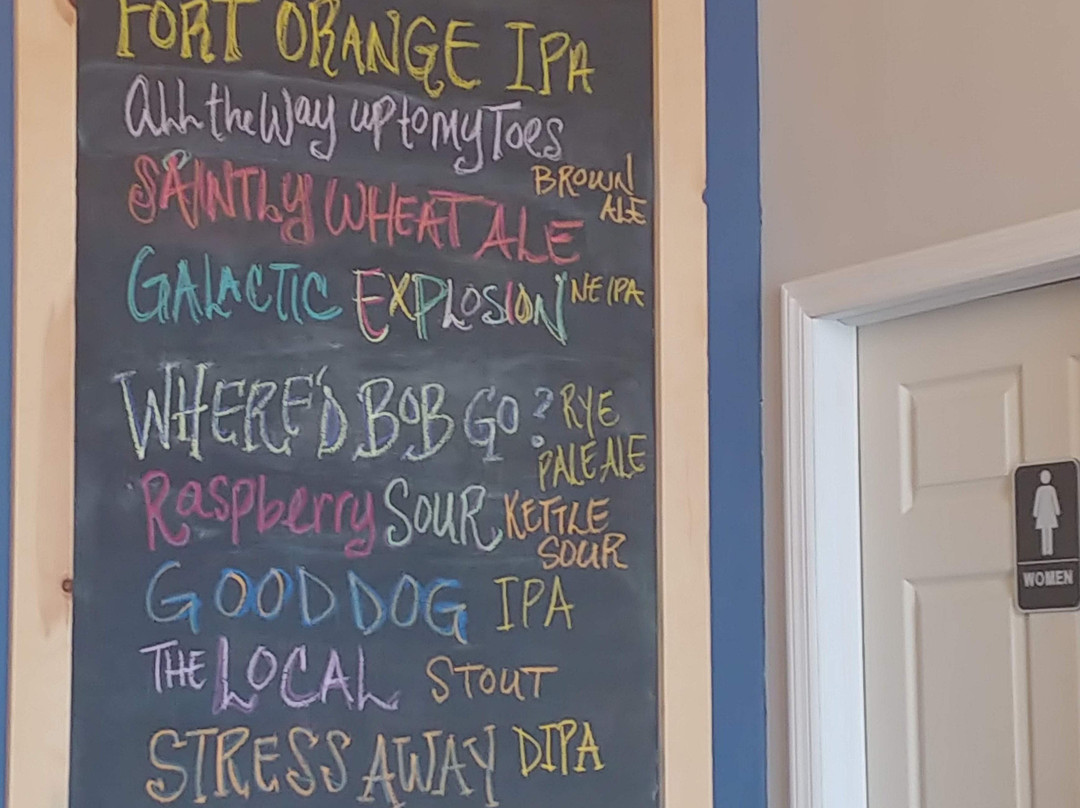 FORT ORANGE IPA
all the Way up to my Toes
BROWN ALE
SAINTLY WHEAT ALE
GALACTIC EXPLOSION NE IPA
WHERE'D BOB GO? RYE
PALE ALE
Raspberry SOUR KETTLE
SOUR
GOOD DOG IPA
THE LOCAL STOUT
STRESS AWAY DIPA
WOMEN